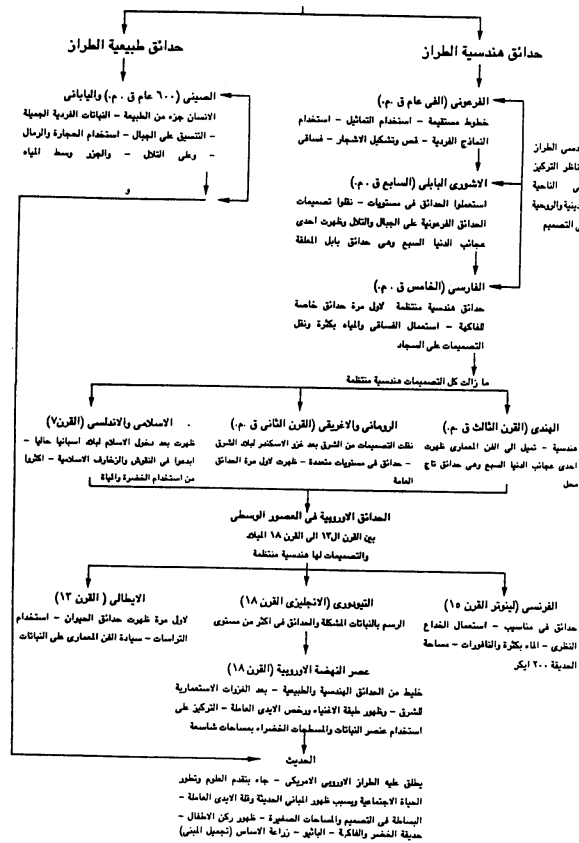 حدائق هندسية الطراز
حدائق طبيعية الطراز
الفرعونى (الفى عام ق . م.)
خطوط مستقيمة – استخدام التماثيل – استخدام
النماذج الفردية – قص وتشكيل الاشجار – فساقى
الصينى (٦٠٠ عام ق . م.) واليابانى
الانسان جزء من الطبيعة – النباتات الفردية الجميلة
– التنسيق على الجبال – استخدام الحجارة والرمال
– وعلى التلال – والجزر وسط المياه
و
دسى الطراز
ناظر التركيز
الناحية
دينية والروحية
التصميم
الاشورى البابلى (السابع ق . م.)
استعملوا الحدائق فى مستويات – نقلوا تصميمات
الحدائق الفرعونية على الجبال والتلال وظهرت احدى
عجائب الدنيا السبع وهى حدائق بابل المعلقة
الفارسى (الخامس ق . م.)
حدائق هندسية منتظمة لاول مرة حدائق خاصة
للفاكهة – استعمال الفساقى والمياه بكثرة ونقل
التصميمات على السجاد
ما زالت كل التصميمات هندسية منتظمة
الهندى (القرن الثالث ق . م.)
هندسية – تميل الى الفن المعمارى ظهرت
احدى عجائب الدنيا السبع وهى حدائق تاج
محل
الرومانى والاغريقى (القرن الثانى ق . م.)
نقلت التصميمات من الشرق بعد غزو الاسكندر لبلاد الشرق
– حدائق فى مستويات متعددة – ظهرت لاول مرة الحدائق
العامة
الاسلامى والاندلسى (القرن٧)
ظهرت بعد دخول الاسلام لبلاد اسبانيا حاليا –
ابدعوا فى النقوش والزخارف الاسلامية – اكثروا
من استخدام الخضرة والمياة
الحدائق الاوروبية فى العصور الوسطى
بين القرن ال١٣ الى القرن ١٨ الميلاد
والتصميمات لها هندسية منتظمة
الفرنسى (لينوتر القرن ١٥)
حدائق فى مناسيب – استعمال الخداع
النظرى – الماء بكثرة والنافورات – مساحة
الحديقة ٢٠٠ ايكر
التيودورى (الانجليزى القرن ١٨)
الرسم بالنباتات المشكلة والحدائق فى اكثر من مستوى
الايطالى ( القرن ١٣)
لاول مرة ظهرت حدائق الحيوان – استخدام
التراسات – سيادة الفن المعمارى على النباتات
عصر النهضة الاوروبية (القرن ١٨)
خليط من الحدائق الهندسية والطبيعية – بعد الغزوات الاستعمارية
للشرق – وظهور طبقة الاغنياء ورخص الايدى العاملة – التركيز على
استخدام عنصر النباتات والمسطحات الخضراء بمساحات شاسعة
الحديث
يطلق عليه الطراز الاوروبى الامريكى – جاء بتقدم العلوم وتطور
الحياة الاجتماعية وبسبب ظهور المبانى الحديثة وقلة الايدى العاملة –
البساطة فى التصميم والمساحات الصغيرة – ظهور ركن الاطفال –
حديقة الخضر والفاكهة – الباثيو – زراعة الاساس (تجميل المبنى)